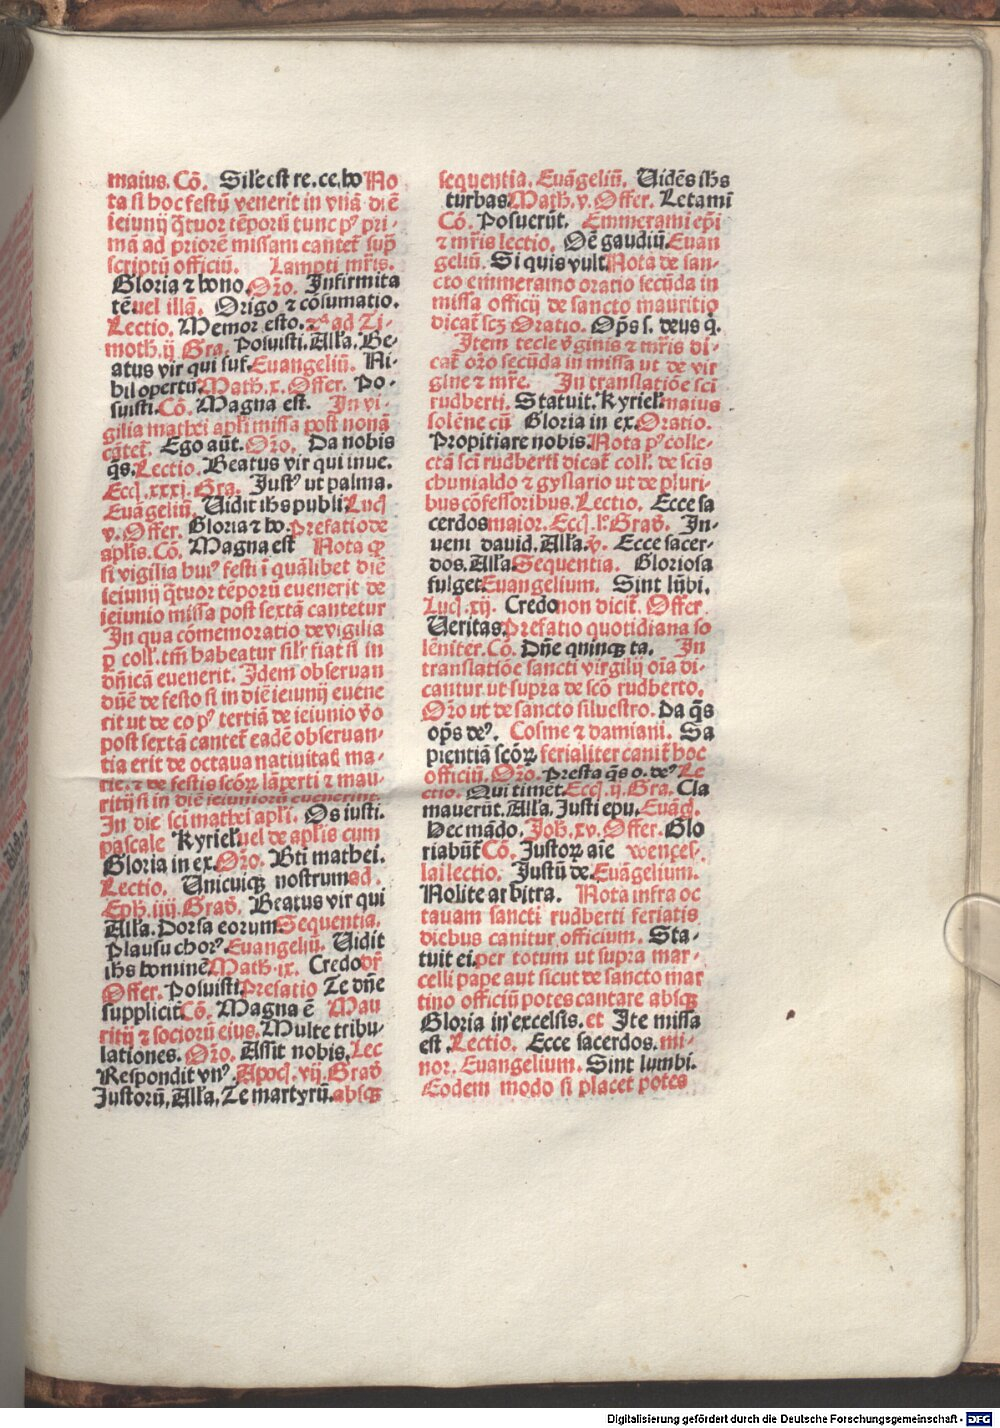 maius. Cō. Sil'e est re. ce. ho No
ta si hoc festū venerit in vnā diē
ieiunij q̄tuor tēporū tunc pꝰ pri-
mā ad priorē missam cantet᷑ sup̄
scriptū officiū. Lampti mr̄is.
Gloria ⁊ hono. Or̄o. Infirmita
tē vel illā. Origo ⁊ cōsumatio.
Lectio. Memor esto. 2ᵃ ad Ti-
moth. ij Gra. Posuisti. All'a. Be-
atus vir qui suf. Euangeliū. Ni-
hil opertū. Math. x. Offer. Po-
suisti. Cō. Magna est. In vi-
gilia mathei apl'i missa post nonā
cātet᷑. Ego aūt. Or̄o. Da nobis
q̄s. Lectio. Beatus vir qui inue.
Eccl. xxxj. Gra. Justꝰ ut palma.
Euāgeliū. Uidit ihs publi. Luc
v. Offer. Gloria ⁊ ho. Prefatio de
apl'is. Cō. Magna est Nota ꝙ
si vigilia huiꝰ festi ī quālibet diē
ieiunij q̄tuor tēporū euenerit de
ieiunio missa post sextā cantetur
In qua cōmemoratio de vigilia
ꝑ coll'. tm̄ habeatur sil'r fiat si in
dn̄ica euenerit. Idem obseruan
dūē de festo si in diē ieiunij euene
rit ut de eo pꝰ tertiā de ieiunio v̄o
post sextā cantet᷑ eadē obseruan-
tia erit de octaua natiuitat̄ ma-
rie. ⁊ de festis scōꝝ lāperti ⁊ mau-
ritij si in diē ieiuniorū euenerint.
In die sci mathei apl'i. Os iusti.
pascale Kyriel' vel de apl'is cum
Gloria in ex. Or̄o. Bt̄i mathei.
Lectio. Unicuiqꝫ nostrum ad
Eph. iiij Grad̄. Beatus vir qui
All'a. Dorsa eorum Sequentia.
Plausu chorꝰ. Euangeliū. Uidit
ihs hominē Math. ix. Credo dr̄
Offer. Posuisti Prefatio Te dn̄e
suppliciт Cō. Magna ē Mau
ritij ⁊ sociorū eius. Multe tribu-
lationes. Or̄o. Assit nobis. Lec
Respondit vnꝰ. Apoc. vij. Grad̄
Justorū. All'a. Te martyrū. absqꝫ
sequentia. Euāgeliū. Uidēs ihs
turbas Math. v. Offer. Letamī
Cō. Posuerūt. Emmerami ep̄i
⁊ mr̄is lectio. Oē gaudiū. Euan
geliū. Si quis vult. Nota de san-
cto emmeramo oratio secūda in
missa officij de sancto mauritio
dicat᷑ scꝫ Oratio. Op̄s s. deus q̄.
Item tecle v̄ginis ⁊ mr̄is di-
cat᷑ or̄o secūda in missa ut de vir
gīne ⁊ mr̄e. In translatiōe sci
rudberti. Statuit. Kyriel' maius
solēne cū Gloria in ex. Oratio.
Propitiare nobis. Nota pꝰ colle-
ctā sci rudberti dicat᷑ coll'. de scīs
chunialdo ⁊ gyslario ut de pluri-
bus cōfessoribus. Lectio. Ecce sa
cerdos maior. Eccl. l'. Grad̄. In-
ueni dauid. All'a. v̄. Ecce sacer-
dos. All'a Sequentia. Gloriosa
fulget Euangelium. Sint lūbi.
Luc. xij. Credo non dicit᷑. Offer.
Ueritas. Prefatio quotidiana so
lēniter. Cō. Dn̄e quinqꝫ ta. In
translatiōe sancti virgilij oīa di-
cantur ut supra de scō rudberto.
Or̄o ut de sancto siluestro. Da q̄s
op̄s deꝰ. Cosme ⁊ damiani. Sa
pientiā scōꝝ ferialiter canit᷑ hoc
officiū. Or̄o. Presta q̄s o. deꝰ Le
ctio. Qui timēt. Eccl. ij. Gra. Cla
mauerūt. All'a. Justi epu. Euāg.
Hec mādo. Joh. xv. Offer. Glo
riabūt᷑ Cō. Justoꝝ aīe wences-
lai lectio. Justū de. Euāgelium.
Nolite arbitra. Nota infra oc
tauam sancti rudberti feriatis
diebus canitur officium. Sta-
tuit ei. per totum ut supra mar-
celli pape aut sicut de sancto mar
tino officiū potes cantare absqꝫ
Gloria in excelsis. et Ite missa
est. Lectio. Ecce sacerdos. mi-
nor. Euangelium. Sint lumbi.
Eodem modo si placet potes
Digitalisierung gefördert durch die Deutsche Forschungsgemeinschaft - DFG